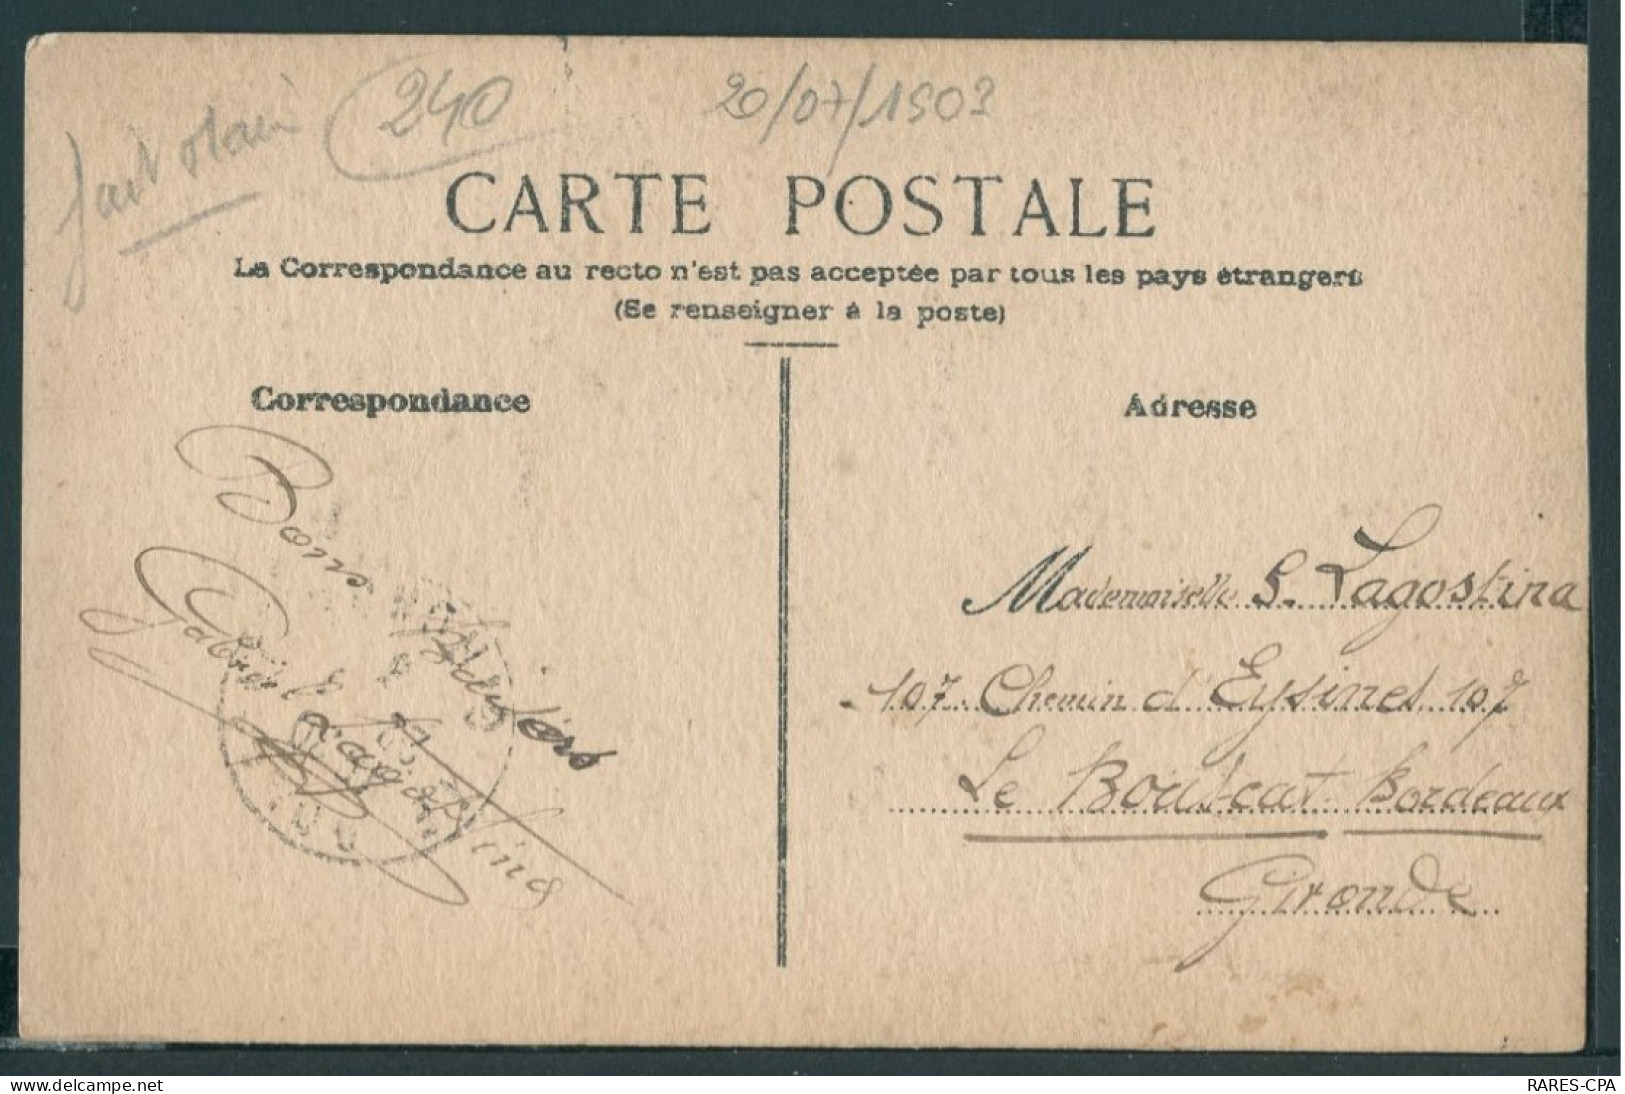 240
20/07/1903
CARTE POSTALE
La Correspondance au recto n'est pas acceptée par tous les pays étrangers
(Se renseigner à la poste)
Correspondance
Adresse
Bons baisers
Gabriel Lagostina
Mademoiselle S. Lagostina
107 Chemin d'Eysines 107
Le Bouscat Bordeaux
Gironde
delcampe.net
RARES-CPA